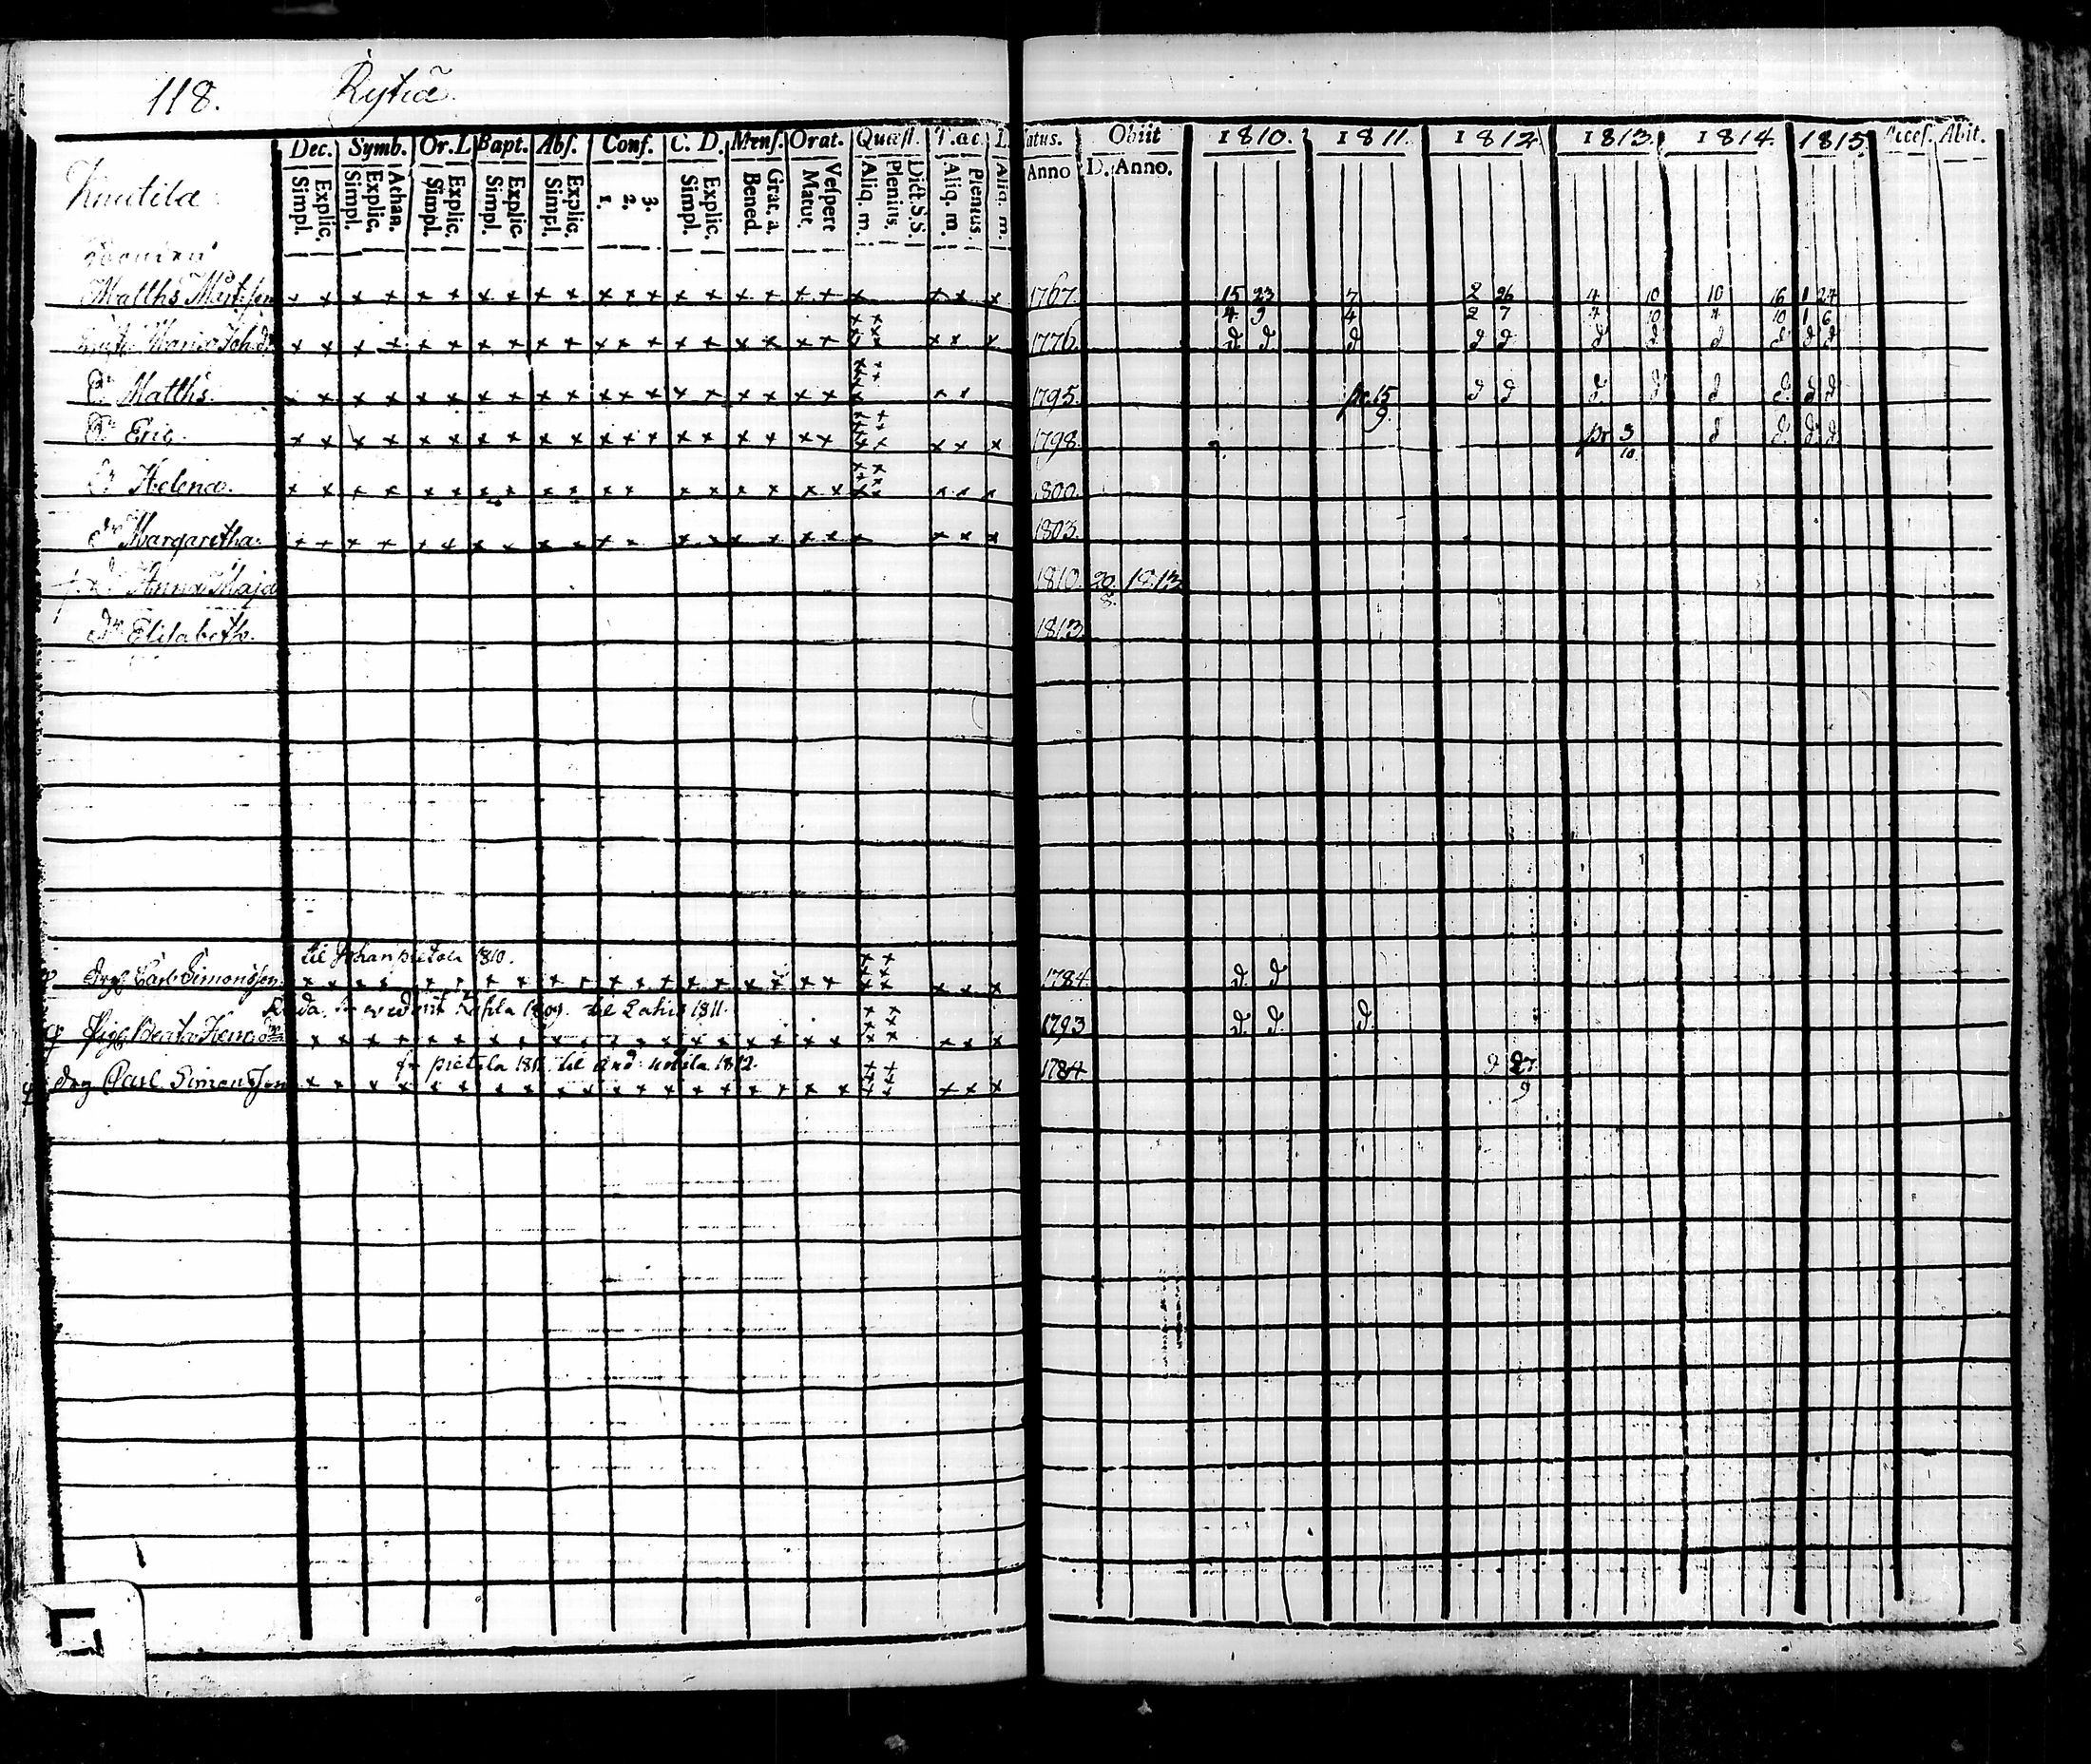 118. Rytiä
Dec. Symb. Or.L Bapt. Abſ. Conf. C. D. Menſ. Orat. Quæſt. T.ac. L. atus. Obiit 1810. 1811. 1812 1813. 1814. 1815. Acceſ. Abit.
Simpl. Explic. Simpl. Explic. Athan. Simpl. Explic. Simpl. Explic. Simpl. Explic. 1. 2. 3. Simpl. Explic. Bened. Grat. a. Matut. Veſpert Aliq. m. Plenius. Dict.S.S. Aliq. m Plenius. Aliq. m. Anno D. Anno.
Knutila
Matths x x x x x x x x x x x x x x x x x x x x x x x 1767. 15 23 7 2 26 4 10 10 16 1 24
4 9 4 2 7 7 10 10 1 6
Maria Joh.dr x x x x x x x x x x x x x x x x x x x x x x 1776. d d d d d d d d d d d
Dr. Matths. x x x x x x x x x x x x x x x x x x x x x 1795. pr. 15 d d d d d d d d
9
Dr. Eric. x x x x x x x x x x x x x x x x x x x x x x 1798. pr 3 d d d d
10
Helena. x x x x x x x x x x x x x x x x x x x x x 1800.
dr Margaretha. x x x x x x x x x x x x x x x x x x x x x 1803.
Anna Maja 1810. 20 1813
8.
dr Elisabeth. 1813
til Johan pietola 1810.
drg Carl Simonsson x x x x x x x x x x x x x x x x x x x x x x 1784. d. d
1809. til Lahis 1811.
Pig. Beata x x x x x x x x x x x x x x x x x x x x x x 1793 d. d. d.
fr pietola 1811. til 1812.
drg Carl Simonsson x x x x x x x x x x x x x x x x x x x x x x 1784. 27
9